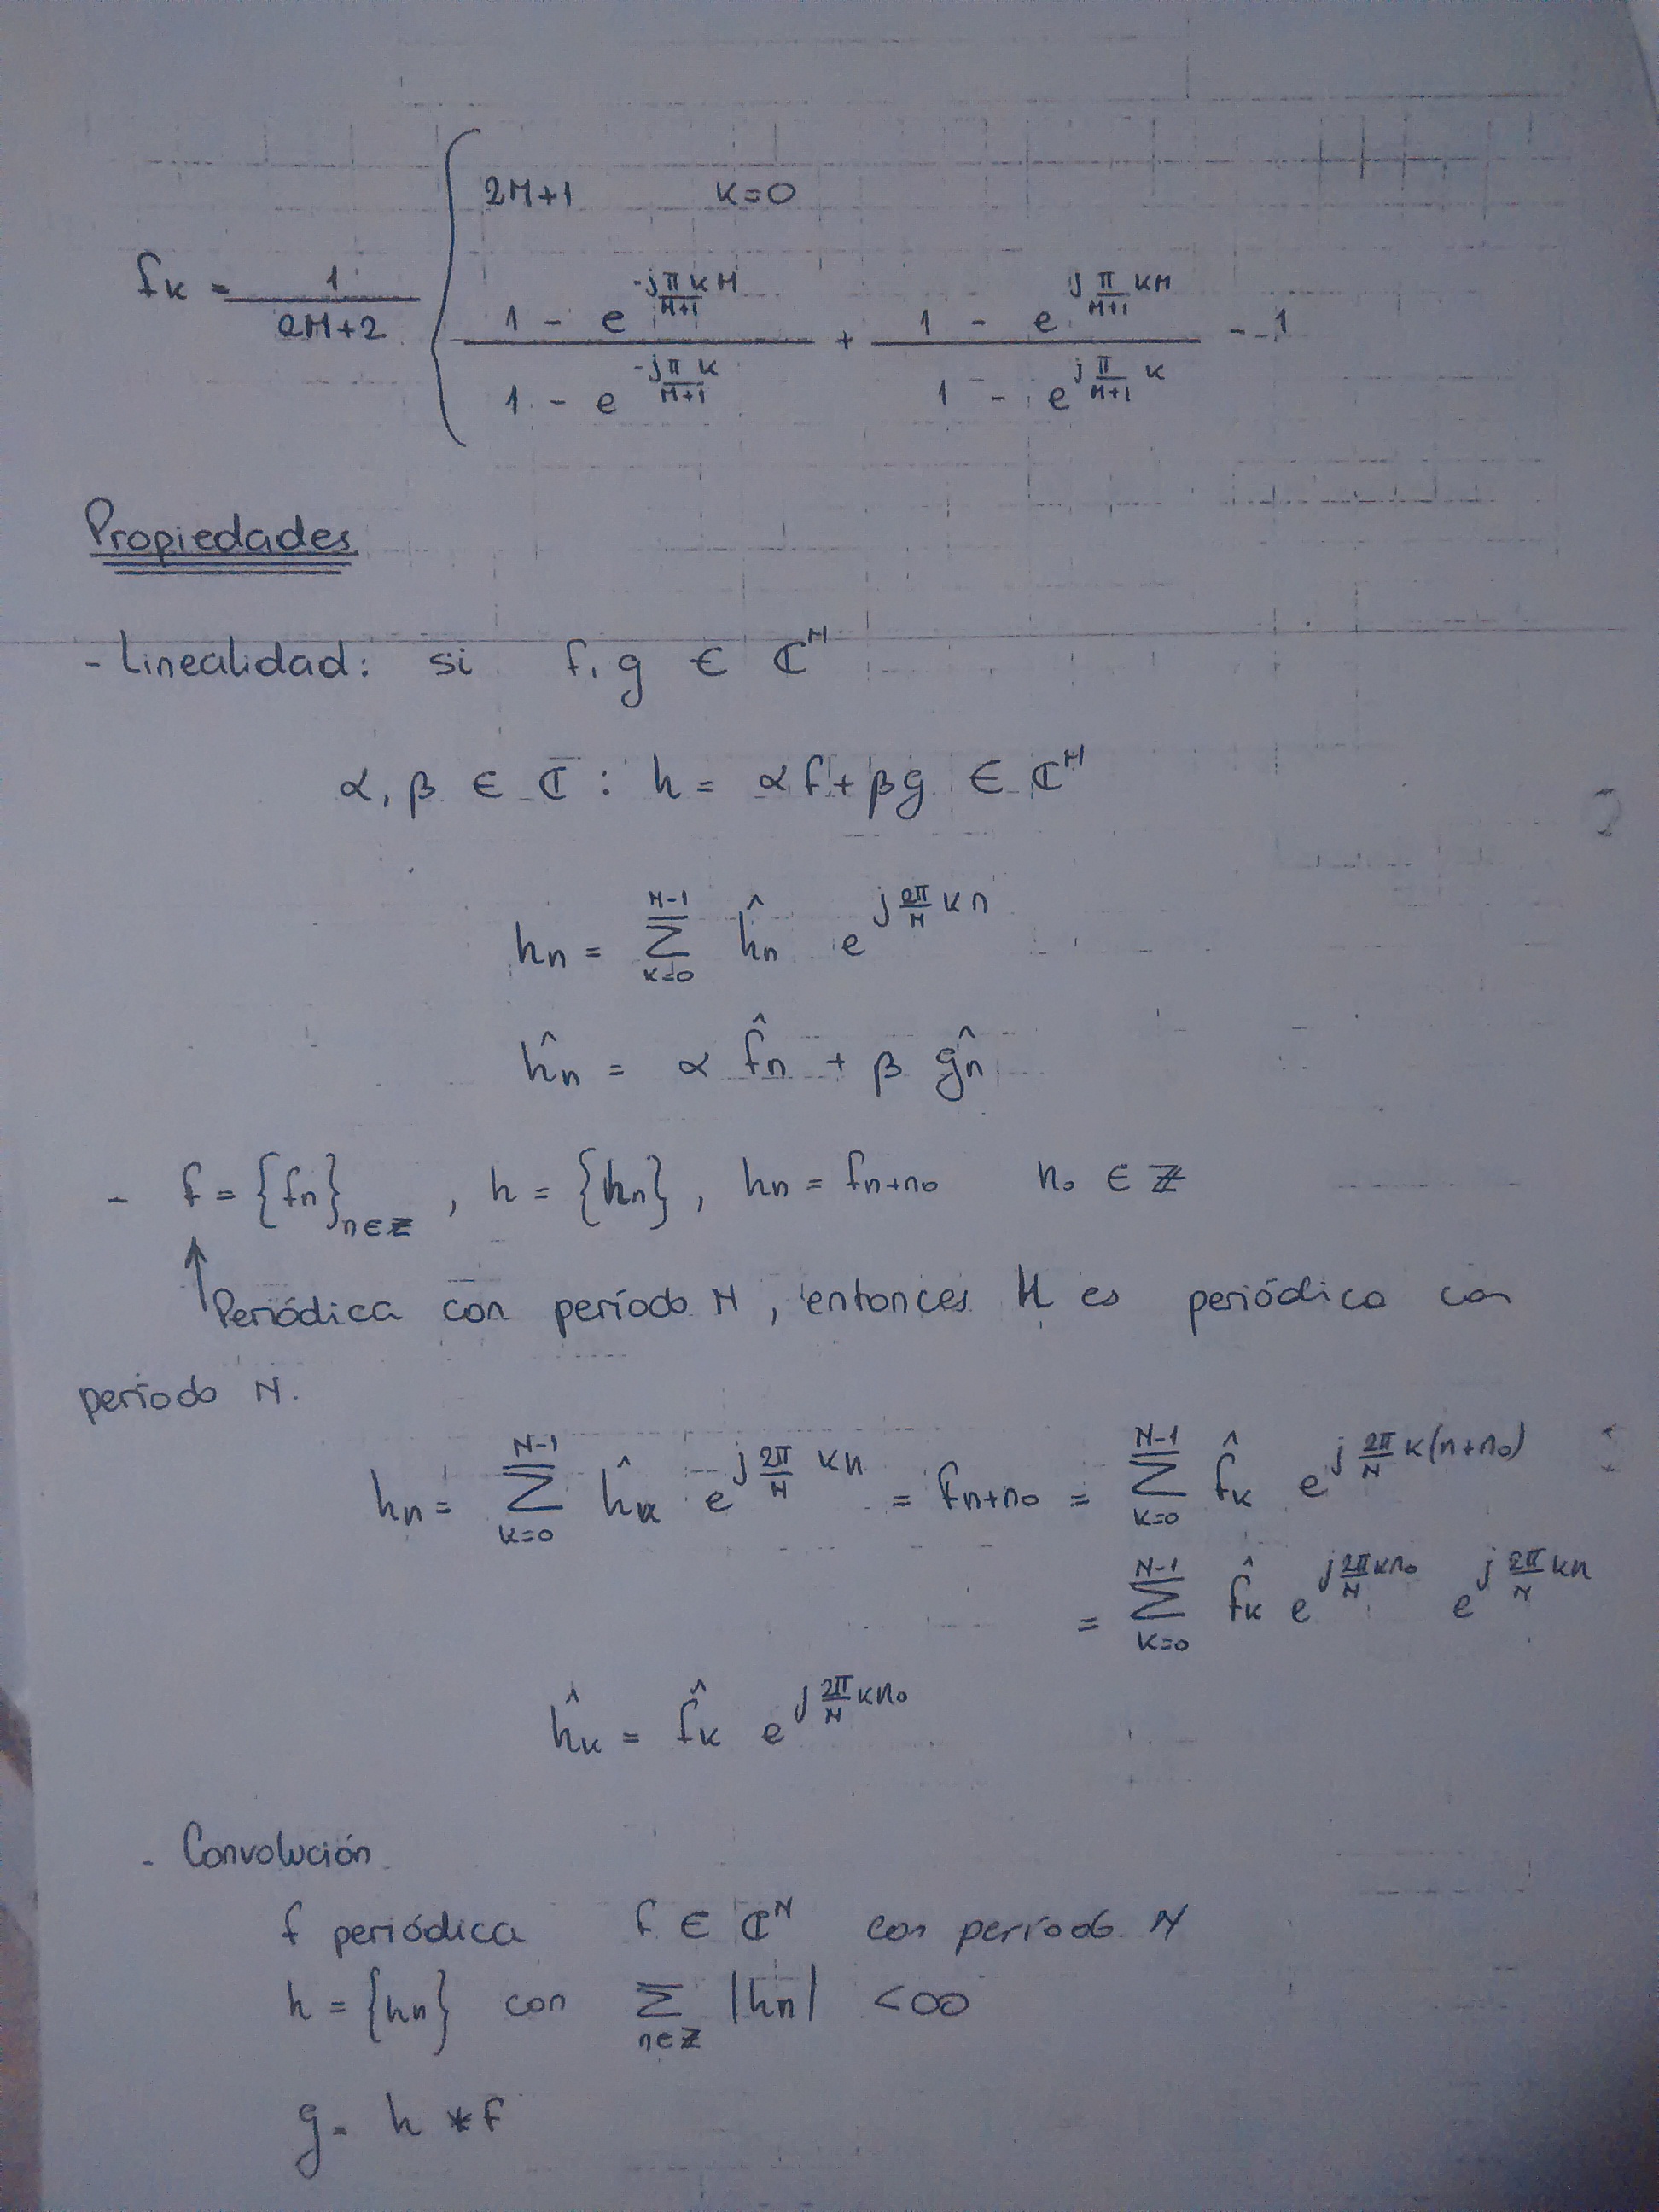 f_k = \frac{1}{2M+2} \begin{cases} 2M+1 & k=0 \\ \frac{1 - e^{-j\frac{\pi}{M+1}kM}}{1 - e^{-j\frac{\pi}{M+1}k}} + \frac{1 - e^{j\frac{\pi}{M+1}kM}}{1 - e^{j\frac{\pi}{M+1}k}} - 1 \end{cases}
Propiedades
- Linealidad: si f, g ∈ ℂ^N
α, β ∈ ℂ : h = αf + βg ∈ ℂ^N
h_n = \sum_{k=0}^{N-1} \hat{h}_n e^{j\frac{2π}{N}kn}
\hat{h}_n = α \hat{f}_n + β \hat{g}_n
- f = {f_n}_{n∈ℤ} , h = {h_n} , h_n = f_{n+n_0} n_0 ∈ ℤ
↑ Periódica con período N, entonces h es periódica con
período N.
h_n = \sum_{k=0}^{N-1} \hat{h}_k e^{j\frac{2π}{N}kn} = f_{n+n_0} = \sum_{k=0}^{N-1} \hat{f}_k e^{j\frac{2π}{N}k(n+n_0)}
= \sum_{k=0}^{N-1} \hat{f}_k e^{j\frac{2π}{N}kn_0} e^{j\frac{2π}{N}kn}
\hat{h}_k = \hat{f}_k e^{j\frac{2π}{N}kn_0}
- Convolución
f periódica f ∈ ℂ^N con período N
h = {h_n} con \sum_{n∈ℤ} |h_n| < ∞
g = h * f